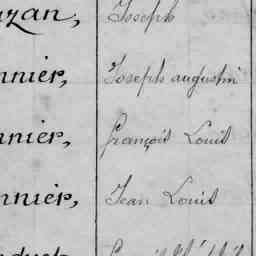 Joseph
nnier, Joseph augustin
nnier, françois Louis
nnier, Jean Louis